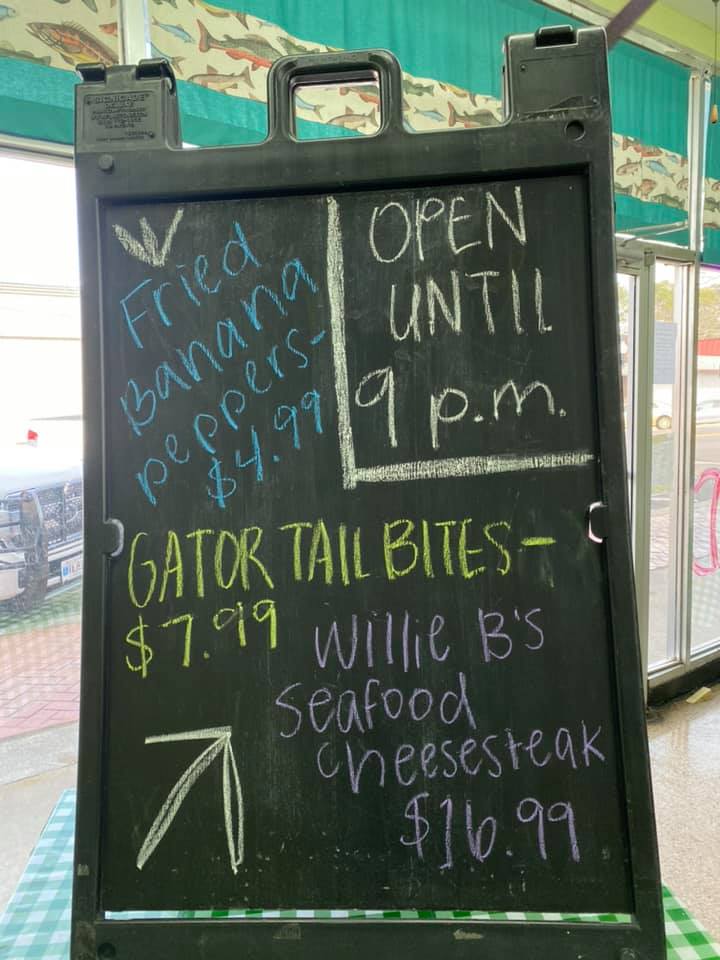 SIGNICADE
DELUXE
Fried
Banana
peppers-
$4.99
OPEN
UNTIL
9 p.m.
GATOR TAIL BITES-
$7.99
Willie B's
seafood
cheesesteak
$16.99